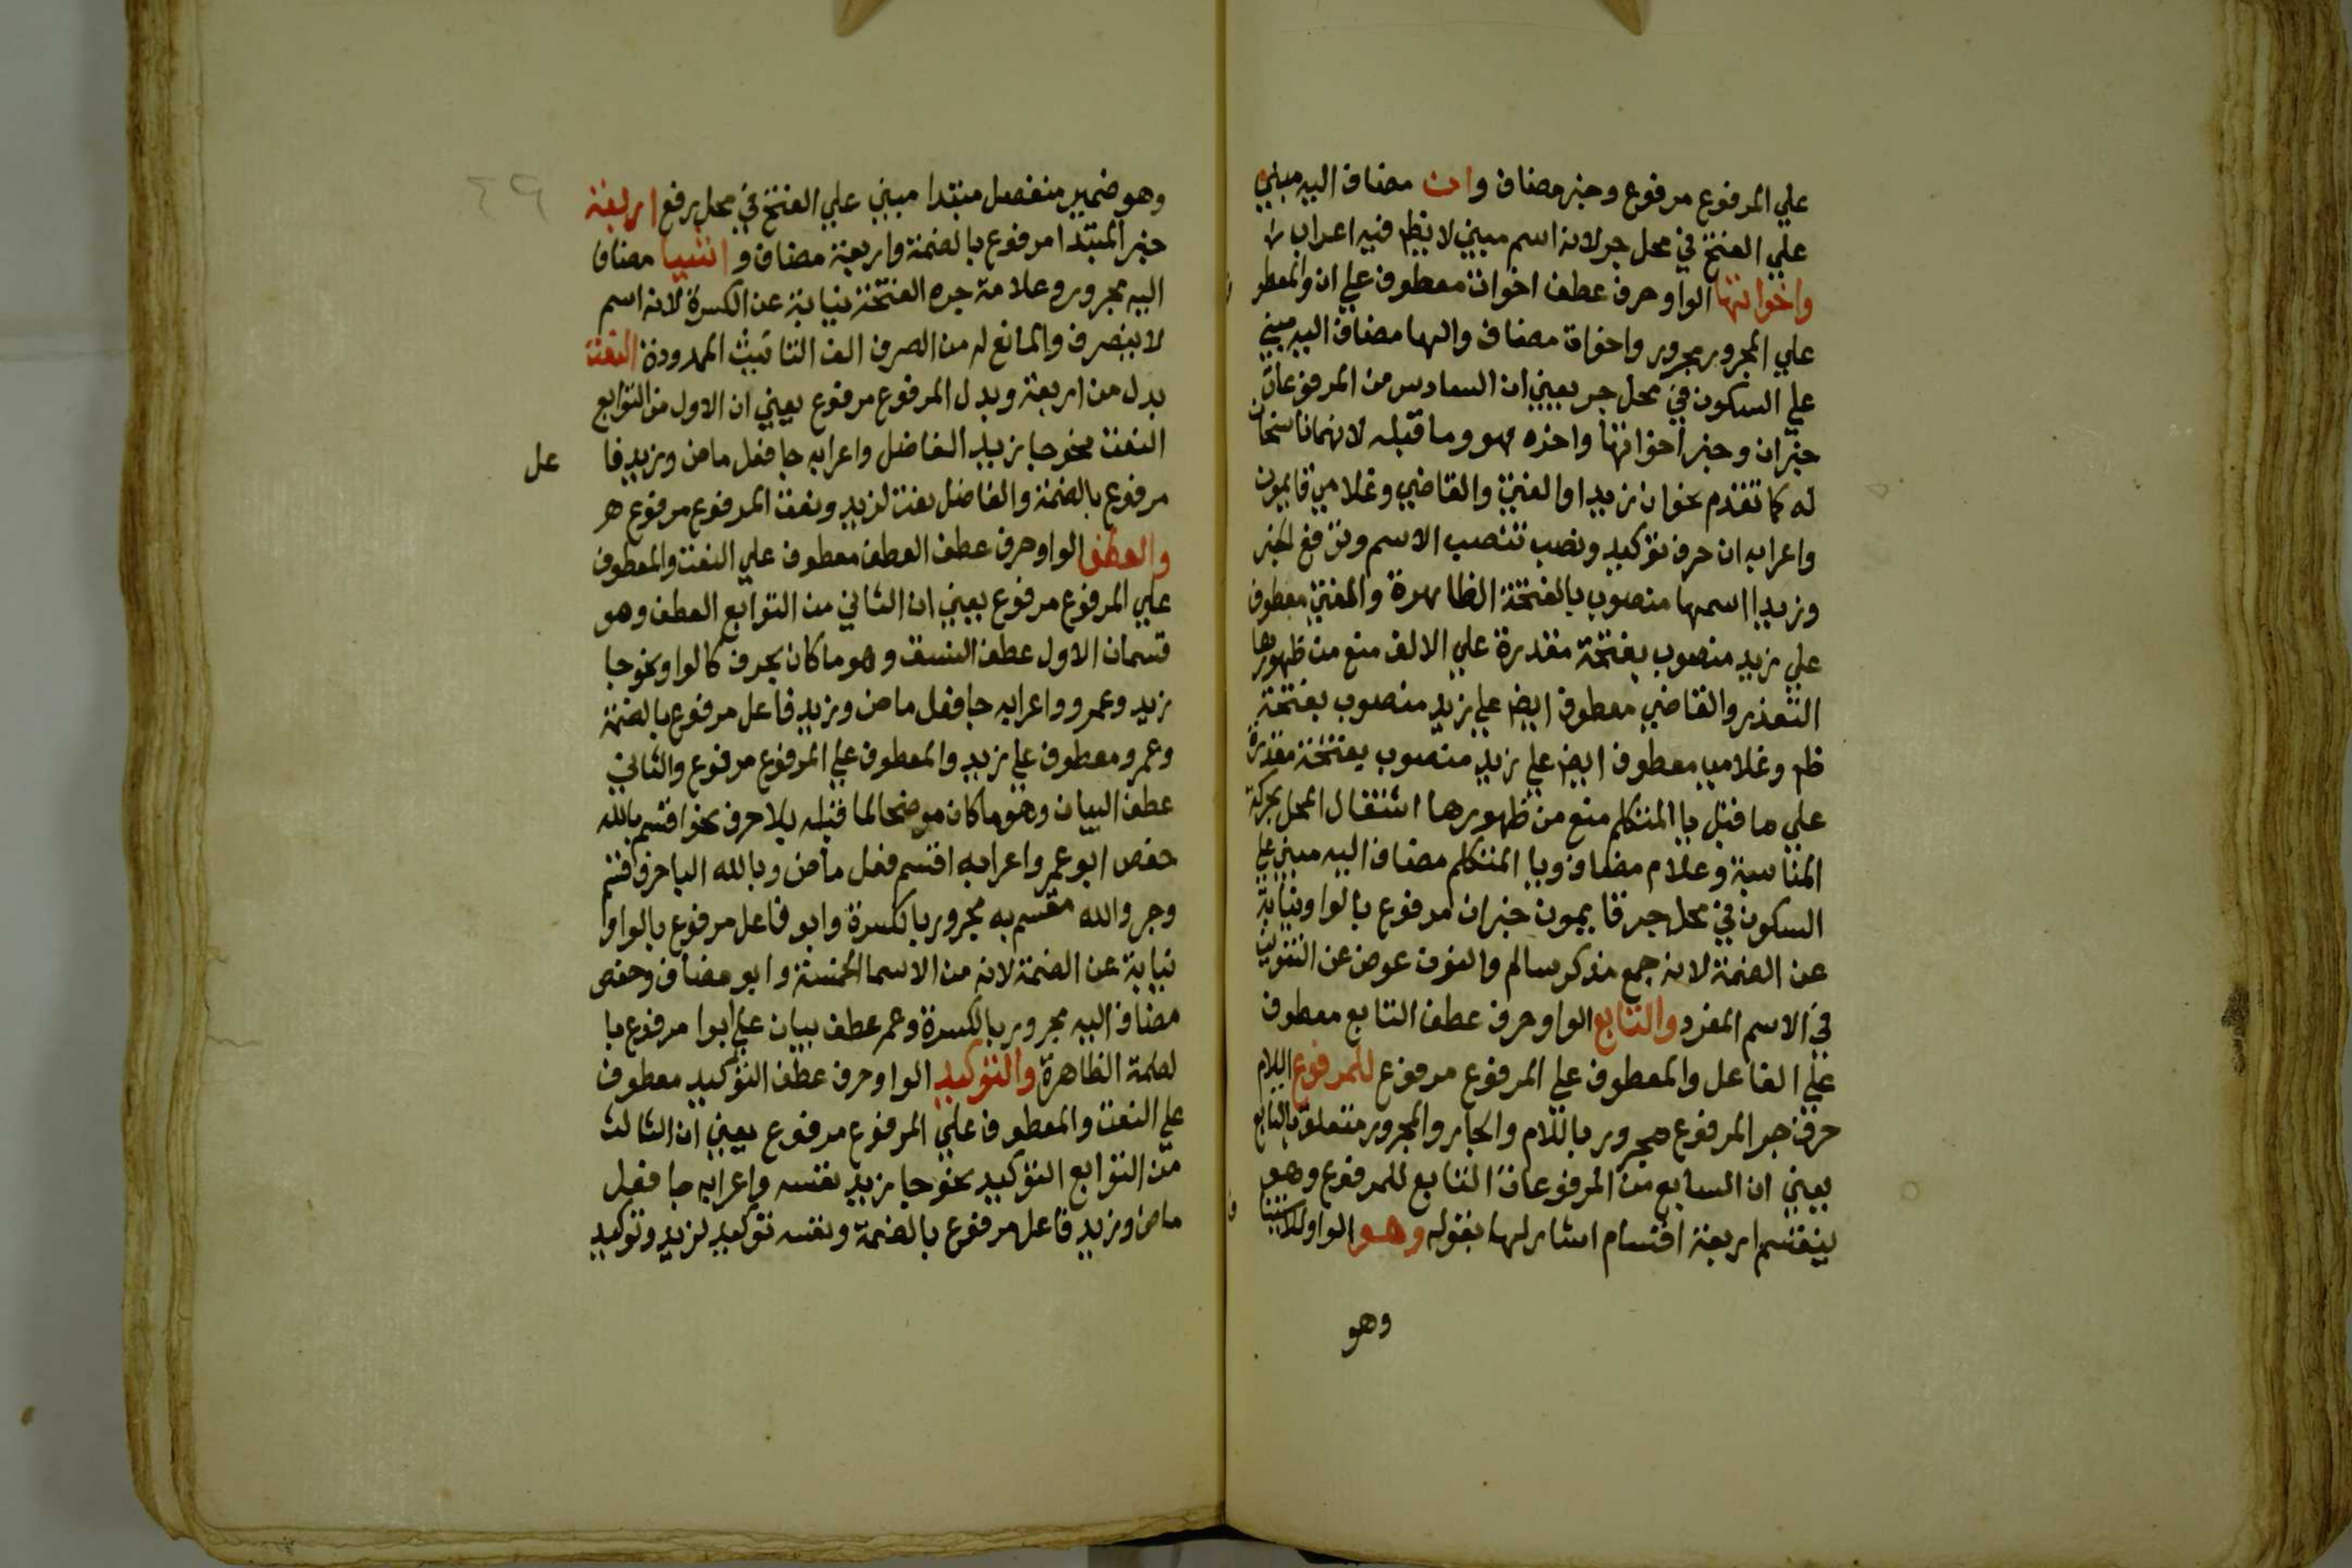 علي المرفوع مرفوع وخبر مضاف وان مضاف اليه مبني
علي الفتح في محل جر لانه اسم مبني لا يظهر فيه اعراب
واخواتها الواو حرف عطف اخوات معطوف علي ان والمعطو
علي المجرور مجرور واخوات مضاف والها مضاف اليه مبني
علي السكون في محل جر يعني ان السادس من المرفوعات
خبر ان وخبر اخواتها واخره هو وما قبله لانهما ناسخان
له كما تقدم نحو ان زيدا والفتي والقاضي وغلامي قايمون
واعرابه ان حرف توكيد ونصب تنصب الاسم وترفع الخبر
وزيدا اسمها منصوب بالفتحة الظاهرة والفتي معطوف
علي زيد منصوب بفتحة مقدرة علي الالف منع من ظهورها
التعذر والقاضي معطوف ايض علي زيد منصوب بفتحة
ظم وغلاميا معطوف ايض علي زيد منصوب بفتحة مقدرة
علي ما قبل يا المتكلم منع من ظهورها اشتغال المحل بحركة
المناسبة وغلام مضاف ويا المتكلم مضاف اليه مبني علي
السكون في محل جر قايمون خبر ان مرفوع بالواو نيابة
عن الضمة لانه جمع مذكر سالم والنون عوض عن التنوين
في الاسم المفرد والتابع الواو حرف عطف التابع معطوف
علي الفاعل والمعطوف علي المرفوع مرفوع للمرفوع اللام
حرف جر المرفوع مجرور باللام والجار والمجرور متعلق بالتابع
يعني ان السابع من المرفوعات التابع للمرفوع وهو
ينقسم اربعة اقسام اشار لها بقوله وهو الواو للاستينا
وهو
وهو ضمير منفصل مبتدا مبني علي الفتح في محل رفع اربعة
خبر المبتدا مرفوع بالضمة واربعة مضاف و اشيا مضاف
اليه مجرور وعلامة جره الفتحة نيابة عن الكسرة لانه اسم
لا ينصرف والمانع له من الصرف الف التانيث الممدودة النعت
بدل من اربعة وبدل المرفوع مرفوع يعني ان الاول من التوابع
النعت نحو جا زيد الفاضل واعرابه جا فعل ماض وزيد فا
عل
مرفوع بالضمة والفاضل نعت لزيد ونعت المرفوع مرفوع هر
والعطف الواو حرف عطف العطف معطوف علي النعت والمعطوف
علي المرفوع مرفوع يعني ان الثاني من التوابع العطف وهو
قسمان الاول عطف النسق وهو ما كان بحرف كالواو نحو جا
زيد وعمرو واعرابه جا فعل ماض وزيد فاعل مرفوع بالضمة
وعمرو معطوف علي زيد والمعطوف علي المرفوع مرفوع والثاني
عطف البيان وهو ما كان موضحا لما قبله بلا حرف نحو اقسم بالله
حفص ابو عمر واعرابه اقسم فعل ماض وبالله البا حرف قسم
وجر والله مقسم به مجرور بالكسرة وابو فاعل مرفوع بالواو
نيابة عن الضمة لانه من الاسما الخمسة وابو مضاف وحفص
مضاف اليه مجرور بالكسرة وعمر عطف بيان علي ابوا مرفوع با
لضمة الظاهرة والتوكيد الواو حرف عطف التوكيد معطوف
علي النعت والمعطوف علي المرفوع مرفوع يعني ان الثالث
من التوابع التوكيد نحو جا زيد نفسه واعرابه جا فعل
ماض وزيد فاعل مرفوع بالضمة ونفسه توكيد لزيد وتوكيد